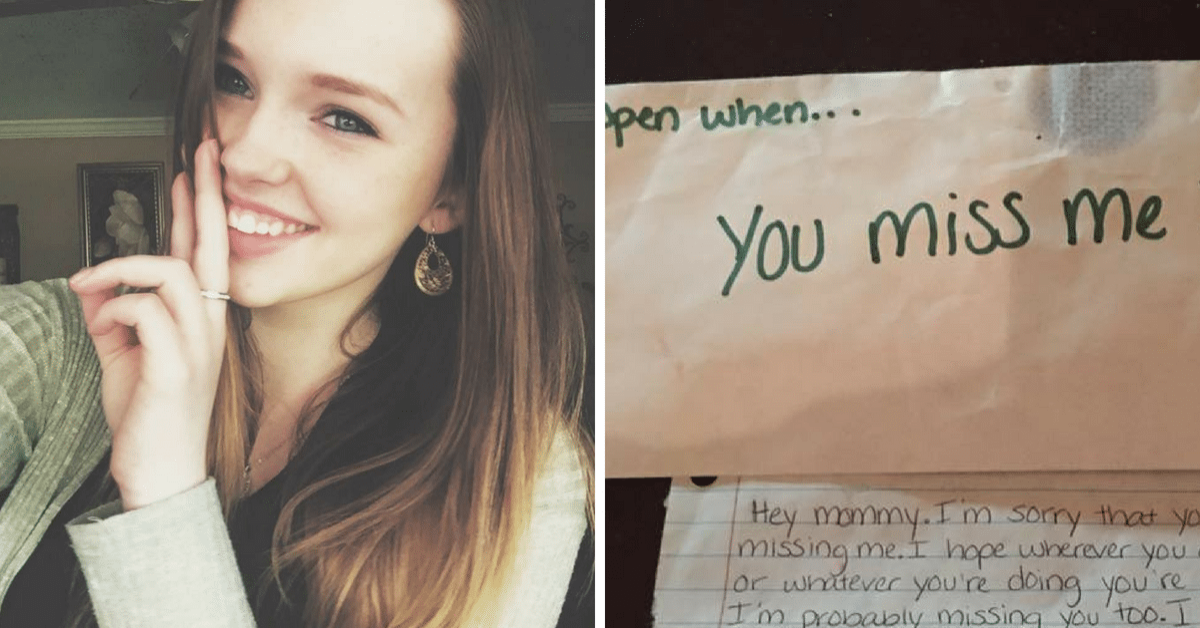 pen when...
You miss me
Hey mommy. I'm sorry that yo
missing me. I hope wherever you
or whatever you're doing you're
I'm probably missing you too. I